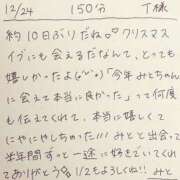 12/24 150分 T様
約10日ぶりだね♡ クリスマス
イブにも会えるだなんて、とっても
嬉しかったよ(♡'ᴗ')「今年みとちゃん
に会えて本当に良かった」って何度
も伝えてくれて、本当に嬉しくて
にやにやしちゃった!!! みとと出会って
半年間ずっと一途に好きでいてくれ
てありがとう。1/2もよろしくね!! みと